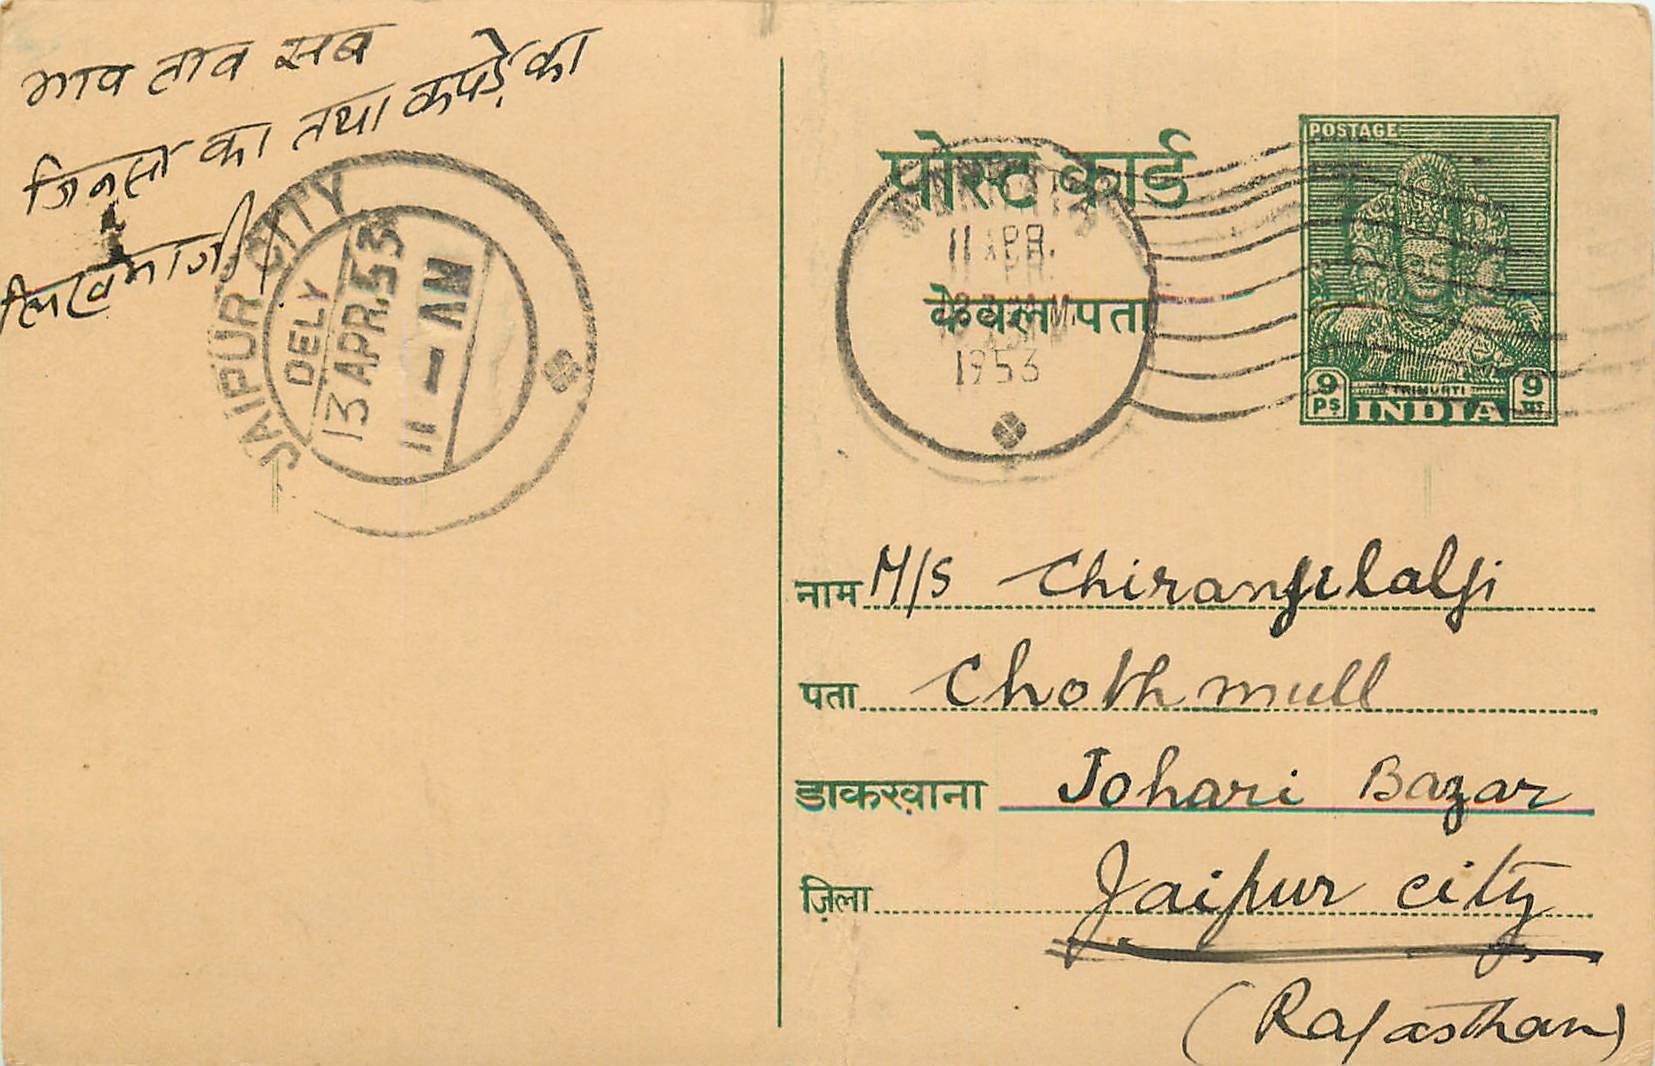 भाव ताव सब
जिनसों का तथा कपड़े का
लिखमाजी
JAIPUR CITY
DELY
13 APR.53
11 - AM
पोस्ट कार्ड
केवल पता
11 APR.
1953
POSTAGE
9 PS
TRIMURTI
INDIA
9
नाम M/S Chiranjilalji
पता Chothmull
डाकखाना Johari Bazar
ज़िला Jaipur city
(Rajasthan)